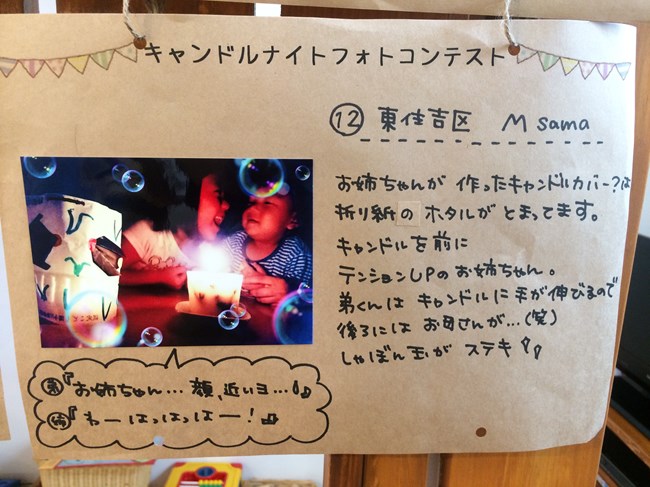 キャンドルナイトフォトコンテスト
⑫ 東住吉区 M sama
お姉ちゃんが 作ったキャンドルカバー?は
折り紙の ホタルが とまってます。
キャンドルを前に
テンションUPのお姉ちゃん。
弟くんは キャンドルに手が伸びるので
後ろには お母さんが…(笑)
しゃぼん玉が ステキ!!
弟『お姉ちゃん… 顔、近いヨ…!』
姉『わーはっはっはー!』